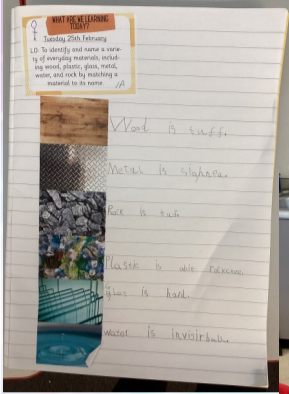 WHAT ARE WE LEARNING
TODAY?
Tuesday 25th February
LO: To identify and name a varie-
ty of everyday materials, includ-
ing wood, plastic, glass, metal,
water, and rock by matching a
material to its name.
Wood is tuff.
Metal is
Rock is tuf.
Plastic is
glas is hard.
Water is